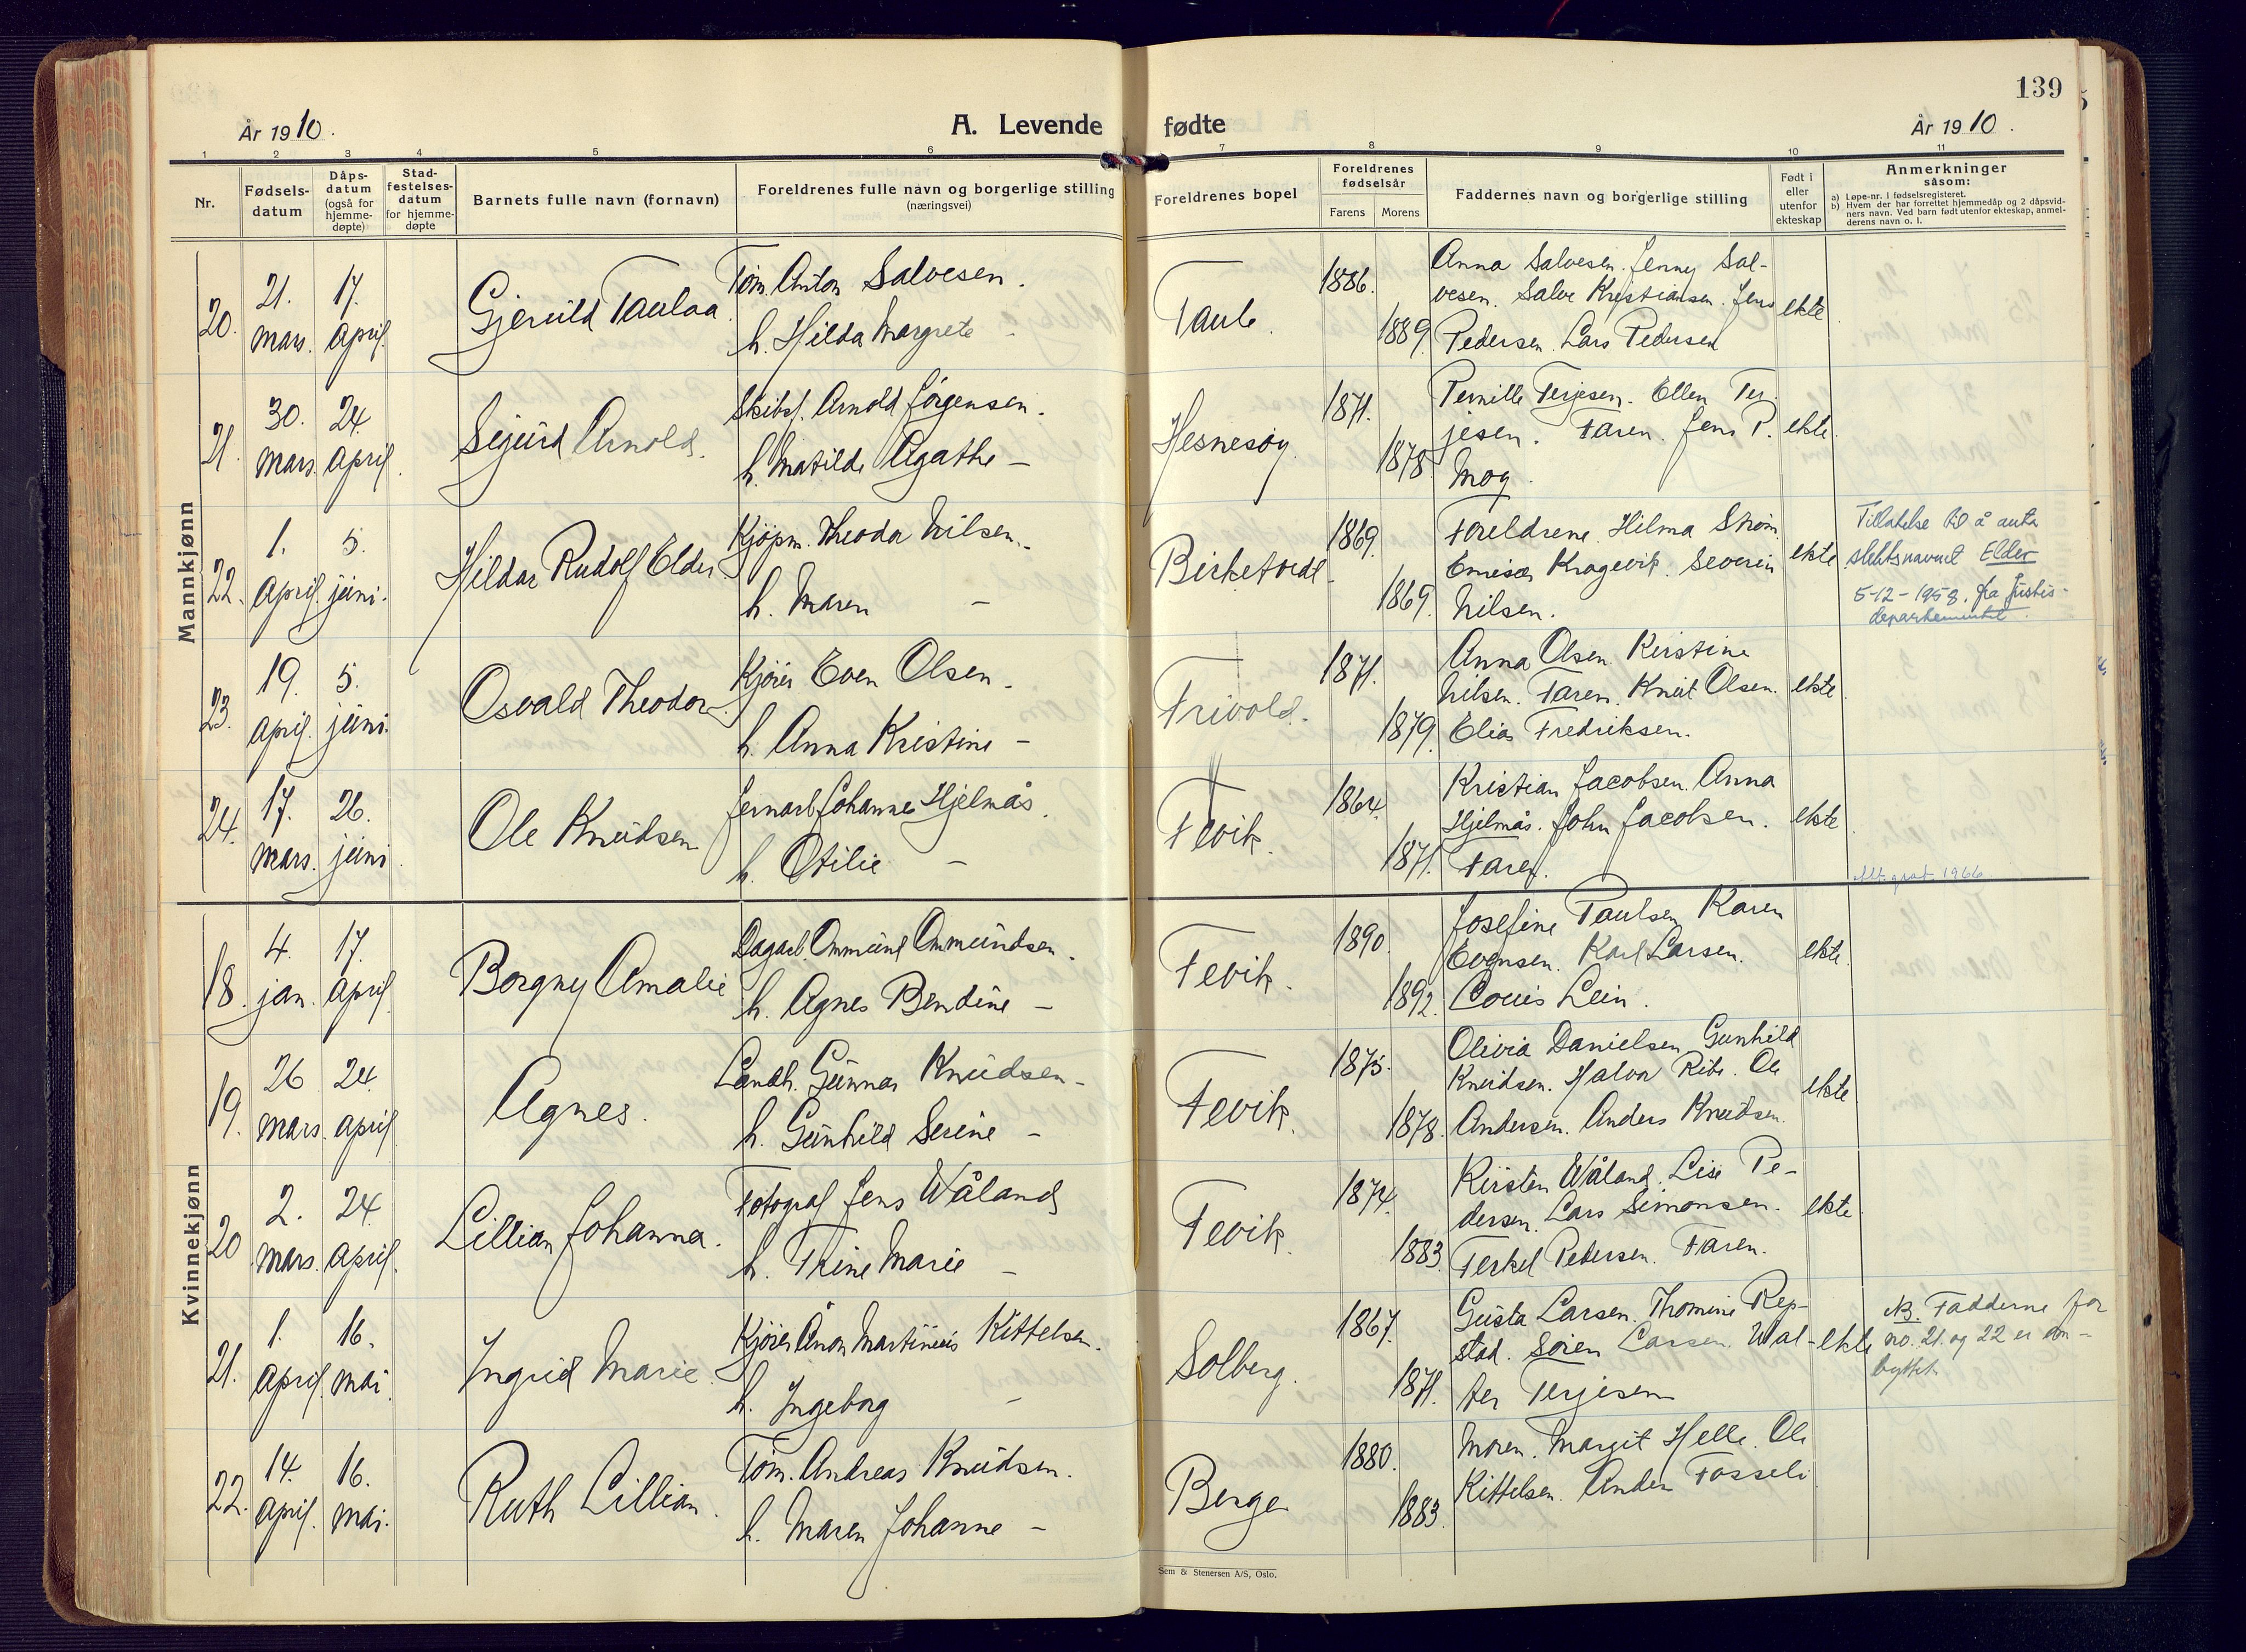 139
År 1910.
A. Levende fødte
År 1910.
1 2 3 4 5 6 7 8 9 10 11
Nr.
Fødsels-
datum
Dåps-
datum
(også for
hjemme-
døpte)
Stad-
festelses-
datum
for hjemme-
døpte
Barnets fulle navn (fornavn)
Foreldrenes fulle navn og borgerlige stilling
(næringsvei)
Foreldrenes bopel
Foreldrenes
fødselsår
Farens Morens
Faddernes navn og borgerlige stilling
Født i
eller
utenfor
ekteskap
Anmerkninger
såsom:
a) Løpe-nr. i fødselsregisteret.
b) Hvem der har forrettet hjemmedåp og 2 dåpsvid-
ners navn. Ved barn født utenfor ekteskap, anmel-
derens navn o. l.
Mannkjønn
20.
21.
mars.
17.
april.
Gjeruld Taulaa.
Tøm. Anton Salvesen.
h. Hilda Margrete -
Taule.
1886.
1889.
Anna Salvesen. Jenny Sal-
vesen. Salve Kristiansen. Jens
Pedersen. Lars Pedersen
ekte.
21.
30.
mars.
24.
april.
Sigurd Arnold.
Skibsf. Arnold Jörgensen.
h. Matilde Agathe -
Hesnesöy.
1871.
1878.
Pernille Terjesen. Ellen Ter-
jesen. Faren. Jens P.
Moy.
ekte.
22.
1.
april.
5.
juni.
Hildar Rudolf Elder.
Kjöpm. Theodor Nilsen.
h. Maren -
Birketvedt
1869.
1869.
Foreldrene. Hilma Strøm
Kragevik. Severin
Nilsen.
ekte
Tillatelse til å anta
slektsnavnet Elder
5-12-1958. fra Justis-
departementet.
23.
19.
april.
5.
juni.
Osvald Theodor.
Kjörer Even Olsen.
h. Anna Kristine -
Frivold.
1871.
1879.
Anna Olsen. Kristine
Nilsen. Faren. Knut Olsen.
Elias Fredriksen.
ekte.
24.
17.
mars.
26.
juni.
Ole Knudsen
Jernarb. Johannes Hjelmås.
h. Otilie -
Fevik.
1864.
1871.
Kristian Jacobsen. Anna
Hjelmås. John Jacobsen.
Faren.
ekte.
1966.
Kvinnekjønn
18.
4.
jan.
17.
april.
Borgny Amalie
Dagarb. Ommund Ommundsen.
h. Agnes Bendine -
Fevik.
1890.
1892.
Josefine Paulsen Karen
Evensen. Karl Larsen.
Louis Lein.
ekte.
19.
26
mars.
24.
april
Agnes.
Landh. Gunnar Knudsen -
h. Gunhild Serine -
Fevik.
1875.
1878.
Olivia Danielsen Gunhild
Knudsen. Halvor Ribe. Ole
Andersen. Anders Knudsen.
ekte
20
2.
mars.
24.
april.
Lillian Johanna.
Fotograf Jens Wåland
h. Trine Marie -
Fevik.
1874.
1883.
Kirsten Wåland. Lise Pe-
dersen. Lars Simonsen.
Terkel Pedersen. Faren.
ekte.
21.
1.
april.
16.
mai.
Ingrid Marie.
Kjörer Anon Martinius Kittelsen.
h. Ingeborg -
Solberg.
1867.
1871.
Gusta Larsen. Thomine Rep-
stad. Sören Larsen. Wal-
ter Terjesen
ekte
NB. Fadderne for
no. 21. og 22 er om-
byttet.
22.
14.
april.
16.
mai.
Ruth Lillian.
Tøm. Andreas Knudsen.
h. Maren Johanne -
Berge
1880.
1883.
Moren. Margit Helle. Ole
Kittelsen. Anders Fosseli
Sem & Stenersen A/S, Oslo.